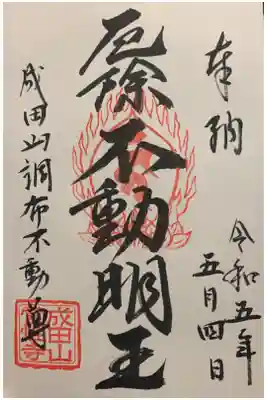 奉納
令和五年
五月四日
厄除不動明王
成田山調布不動尊
成田山